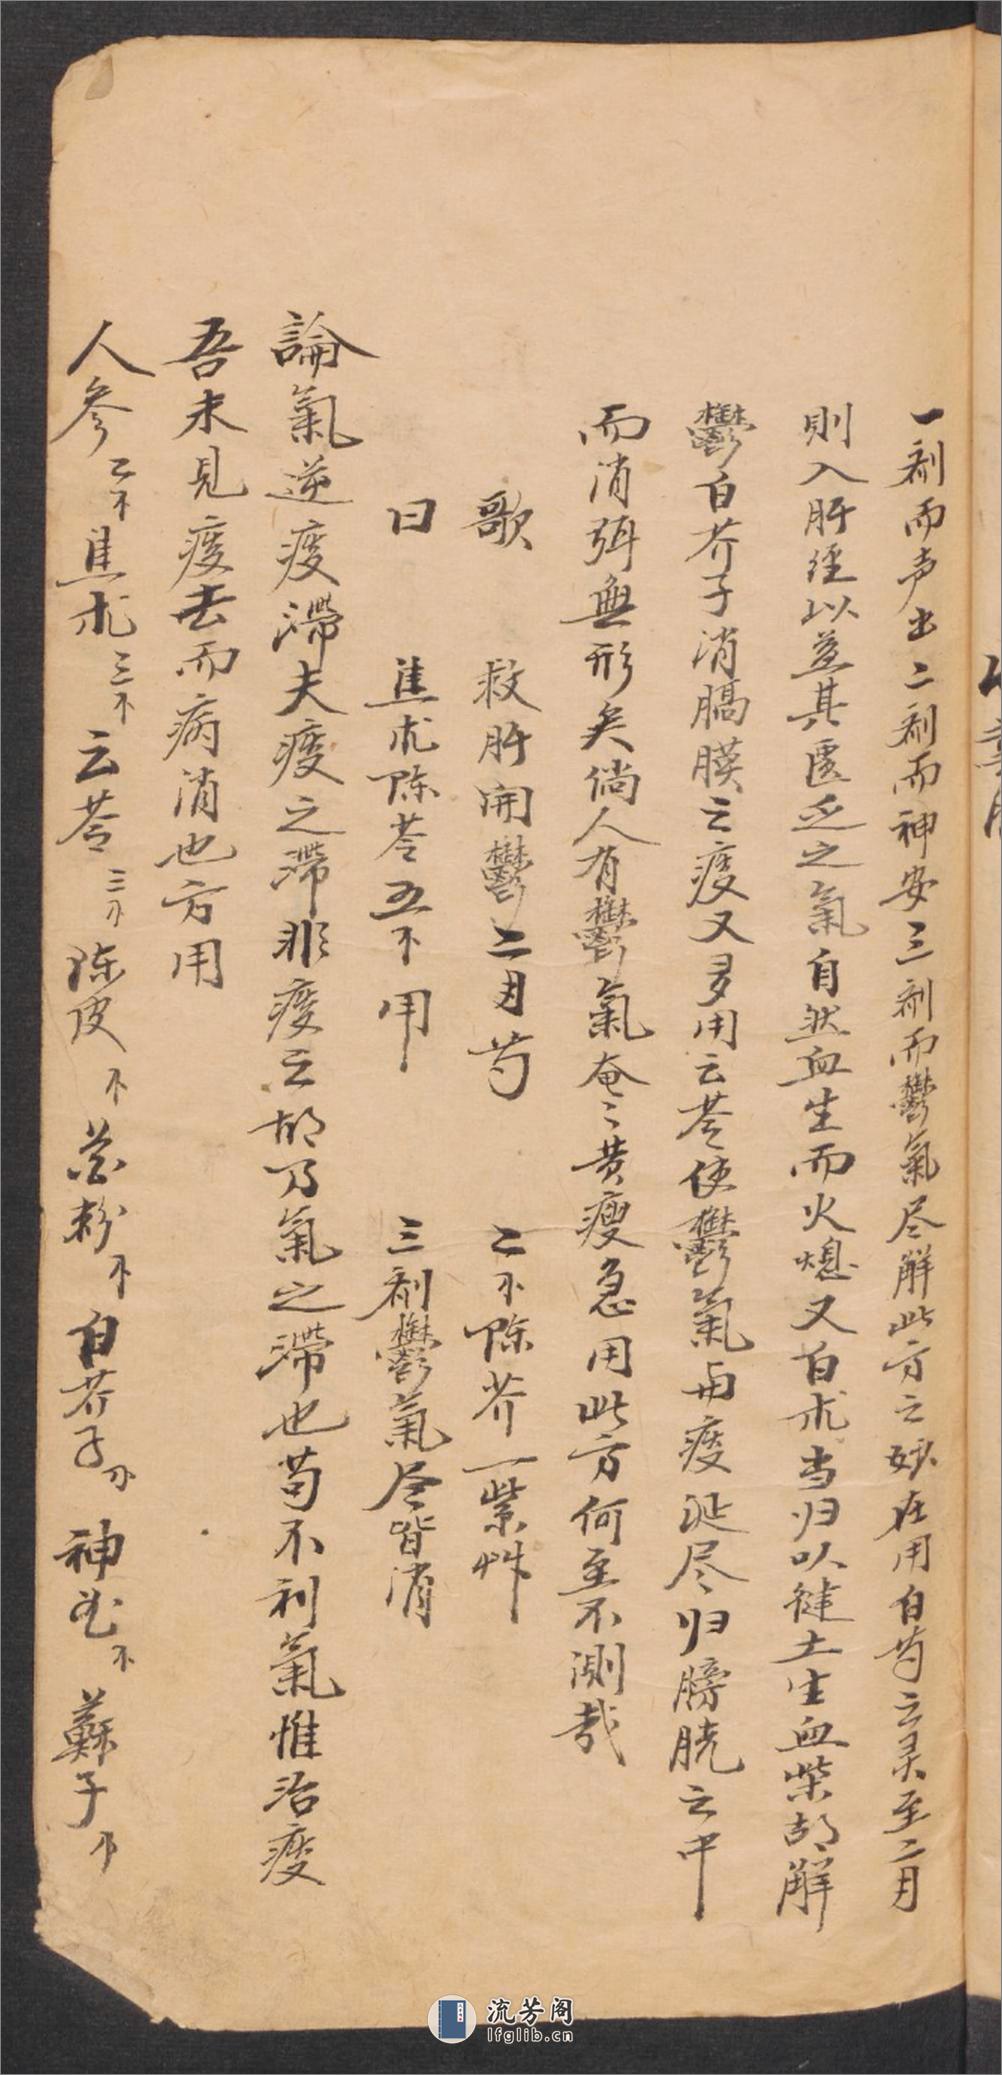 一剤而声出二剤而神安三剤而鬱氣尽解此方之妙在用白芍之灵至二月
則入肝經以益其匱乏之氣自然血生而火熄又白朮当归以健土生血柴胡解
鬱白芥子消膈膜之痰又多用云苓使鬱氣与痰涎尽归膀胱之中
而消弭無形矣倘人有鬱氣奄〻黄瘦急用此方何至不測哉
歌 救肝開鬱二月芍 二不陈芥一紫艸
曰 焦朮陈苓五不用 三剤鬱氣尽皆消
論氣逆痰滯夫痰之滯非痰之故乃氣之滯也苟不利氣惟治痰
吾未見痰去而病消也方用
人參二不焦朮三不云苓三不陈皮不花粉不白芥子不神曲不蘇子不
流芳阁
lfglib.cn